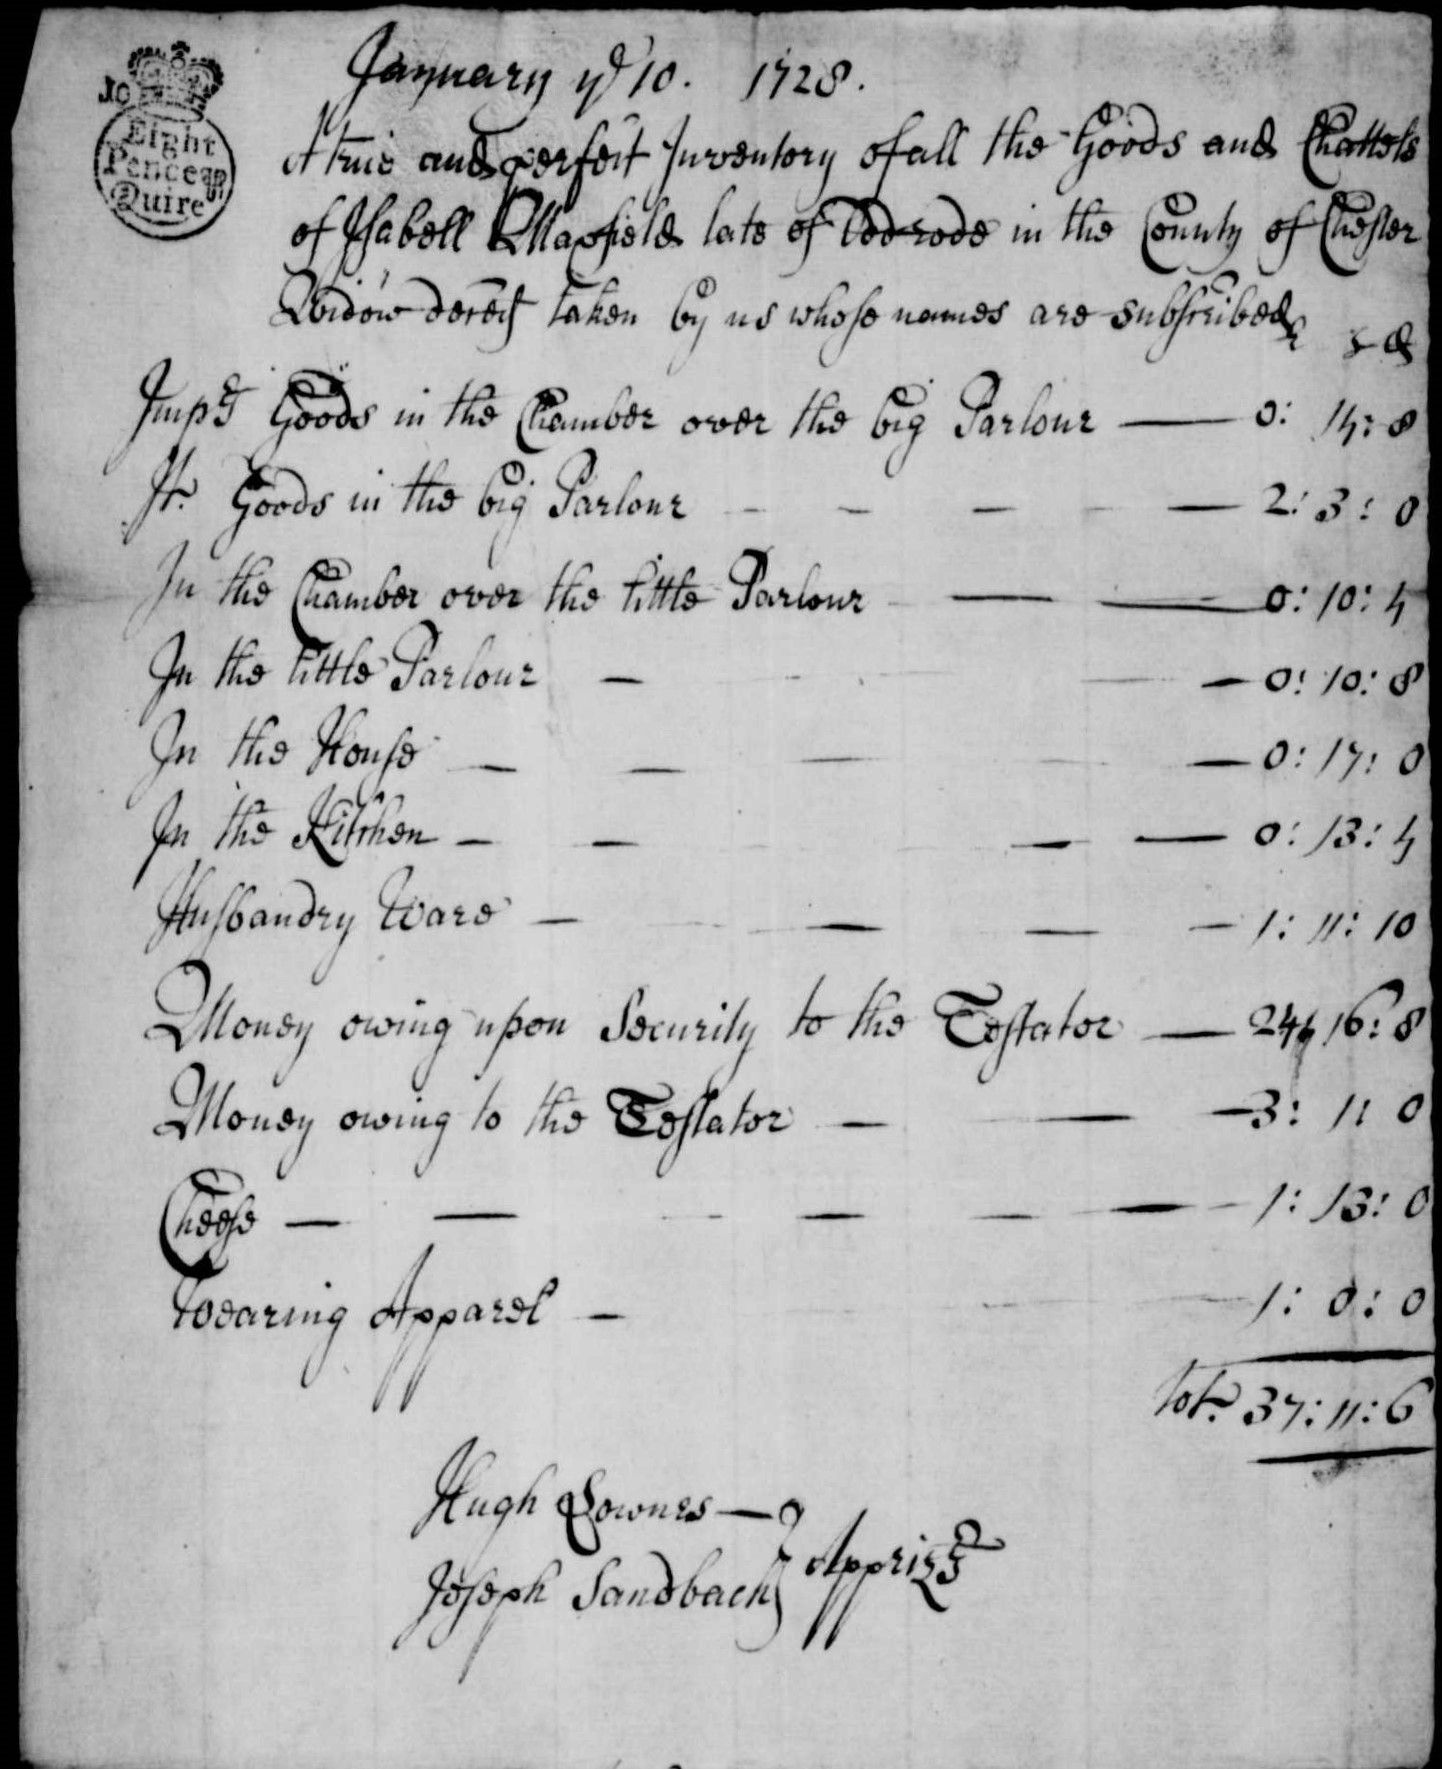 JO
Eight
Pence pr
Quire
January ye 10. 1728.
A true and perfect Inventory of all the Goods and Chattels
of Isabell Maxfield late of Odd rode in the County of Chester
Widow decedt taken by us whose names are subscribed
s d
Imprs Goods in the Chamber over the big Parlour — 0: 14: 8
It. Goods in the big Parlour — 2: 3: 0
In the Chamber over the little Parlour — 0: 10: 4
In the little Parlour — 0: 10: 8
In the House — 0: 17: 0
In the Kitchen — 0: 13: 4
Husbandry Ware — 1: 11: 10
Money owing upon Security to the Testator — 24: 16: 8
Money owing to the Testator — 3: 1: 0
Cheese — 1: 13: 0
Wearing Apparel — 1: 0: 0
tot. 37: 11: 6
Hugh Lownes —
Joseph Sandbach } Apprizrs